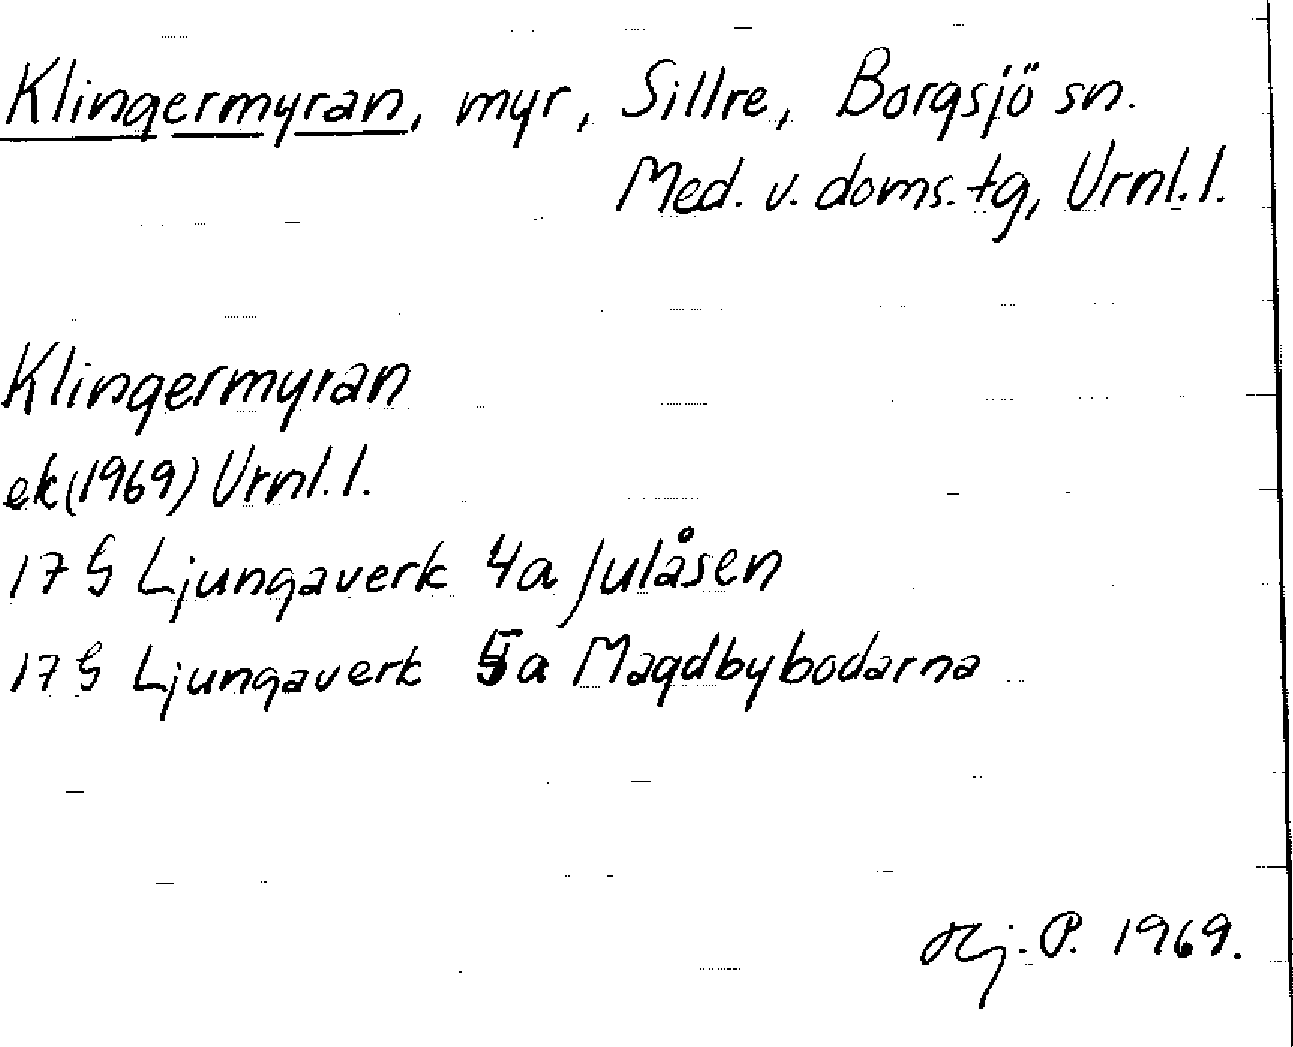 Klingermyran, myr, Sillre, Borgsjö sn.
Med. v. doms. tg, Urnl. l.
Klingermyran
ek (1969) Urnl. l.
17 G Ljungaverk 4a Julåsen
17 G Ljungaverk 5a Magdbybodarna
Hj. P. 1969.